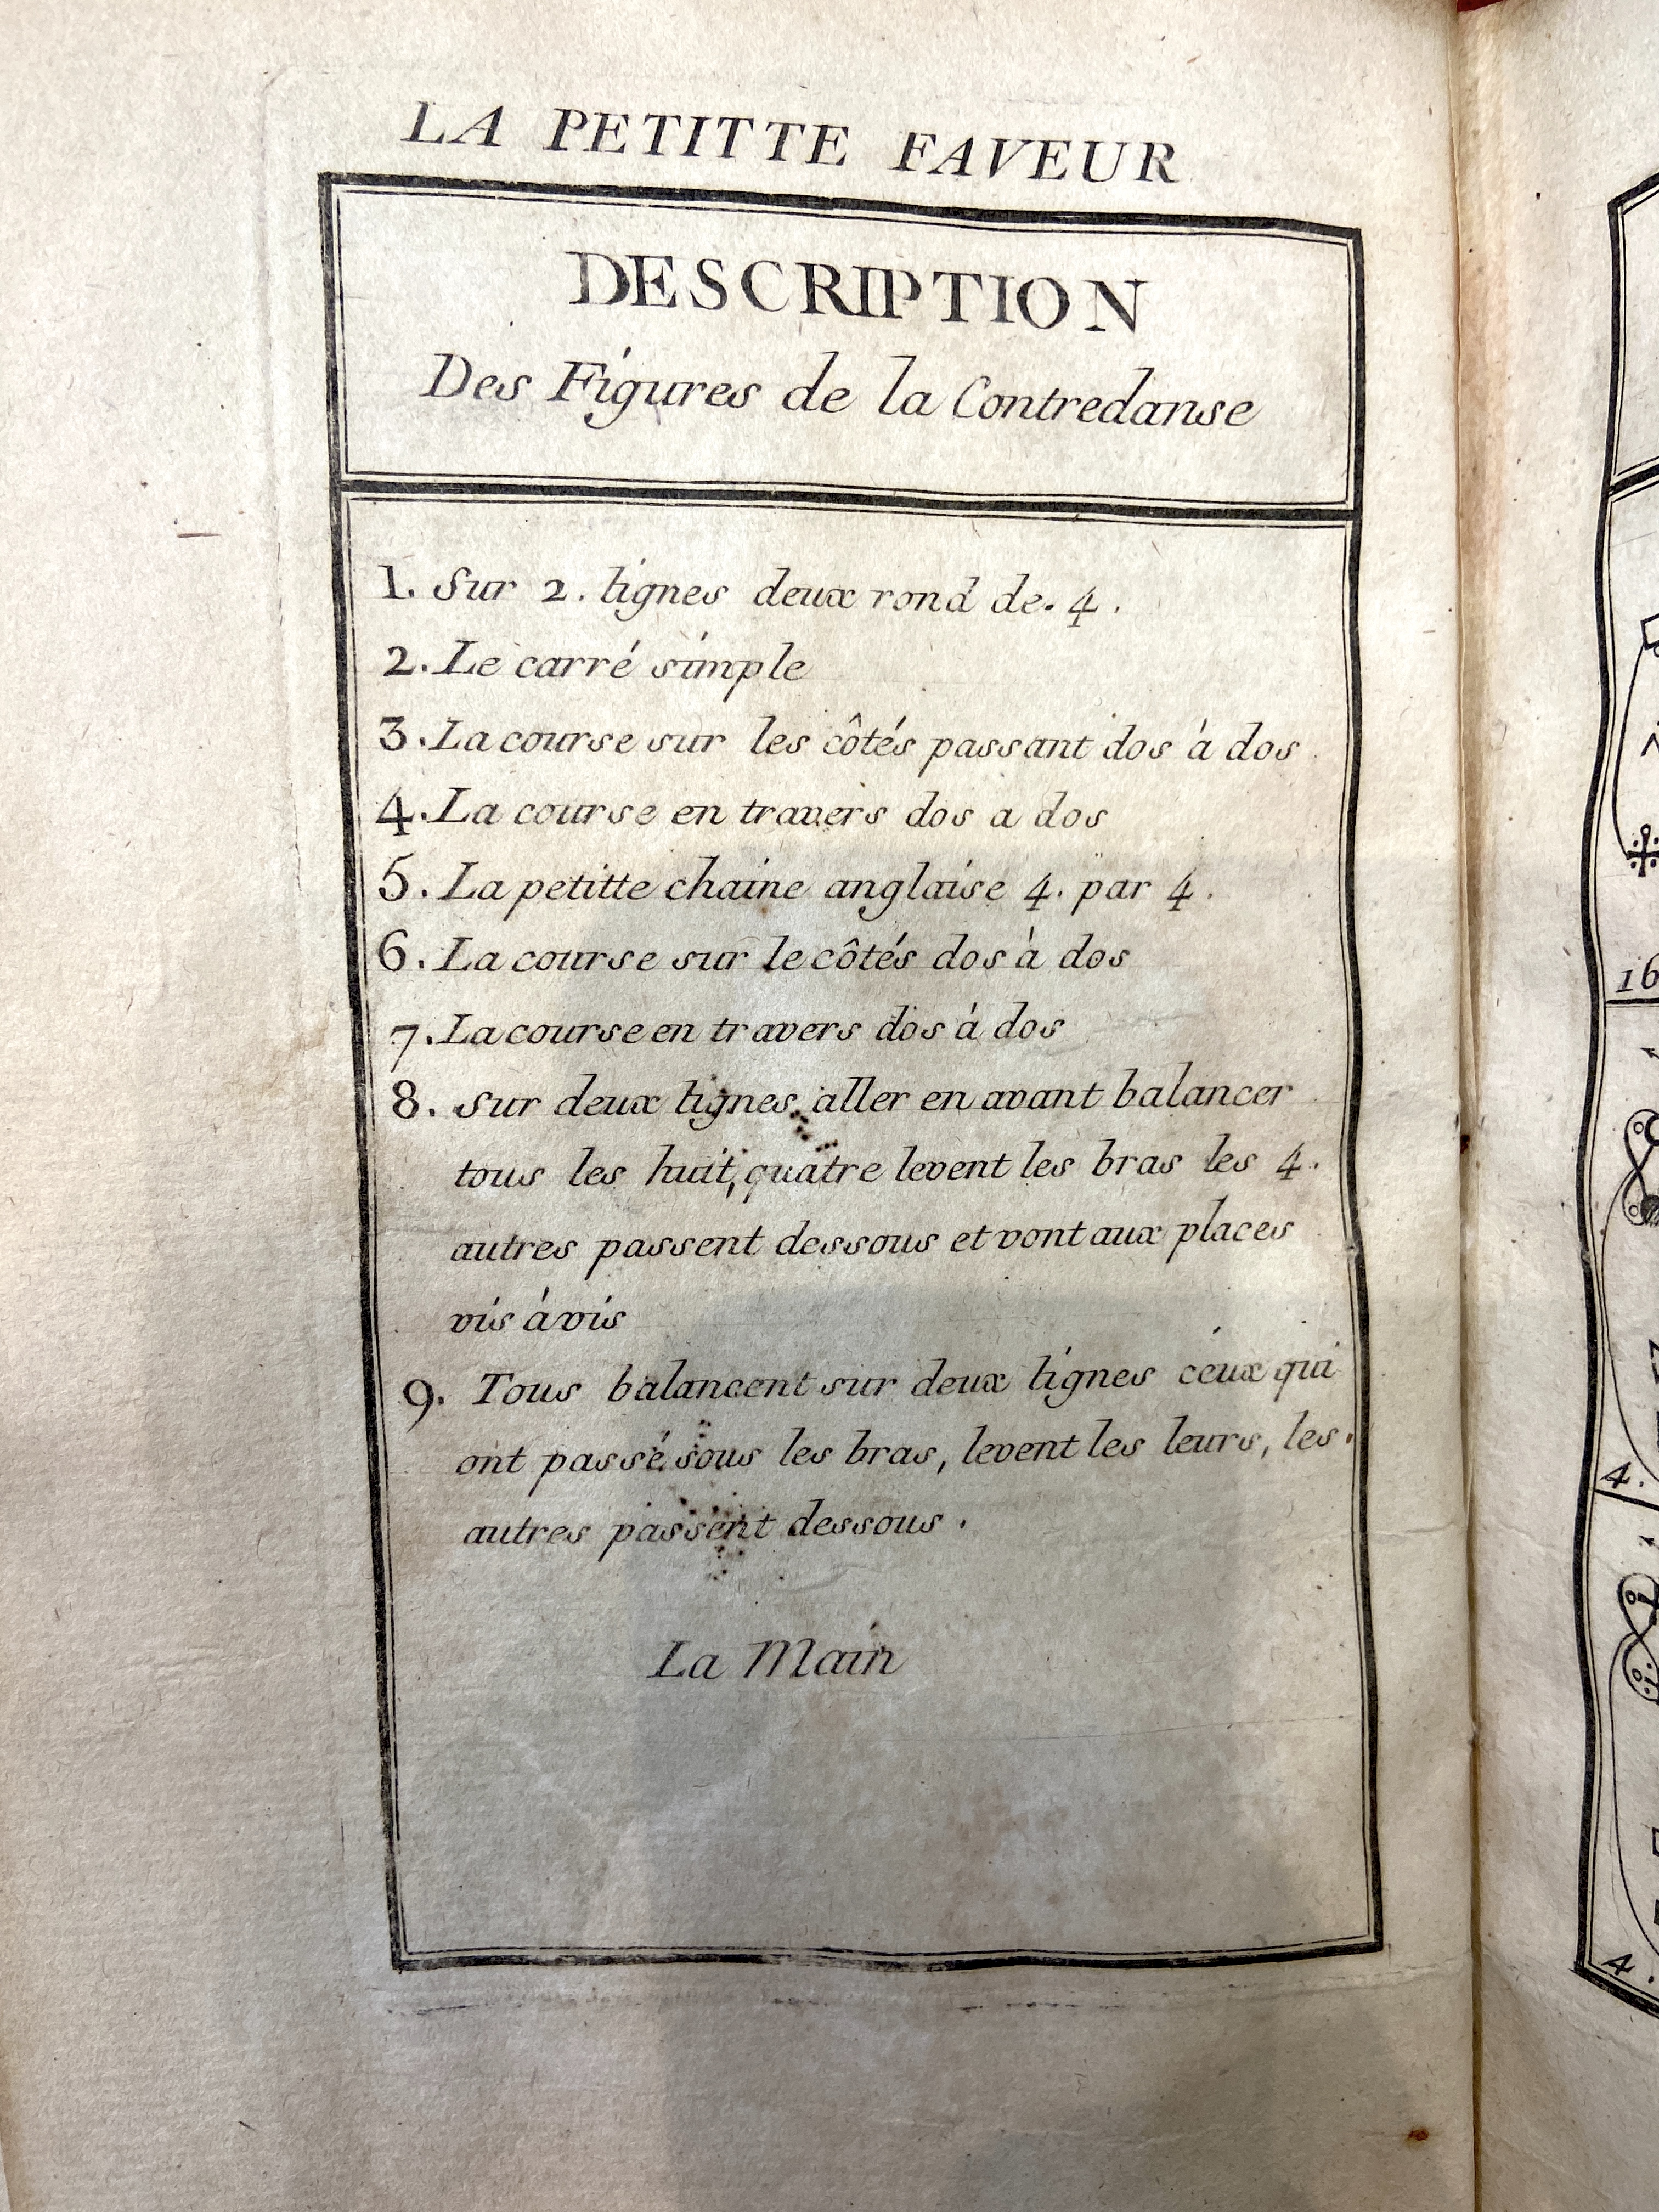 LA PETITTE FAVEUR
DESCRIPTION
Des Figures de la Contredanse
1. Sur 2. lignes deux rond de. 4.
2. Le carré simple
3. La course sur les côtés passant dos à dos.
4. La course en travers dos a dos
5. La petitte chaine anglaise 4. par 4.
6. La course sur le côtés dos à dos
7. La course en travers dos à dos
8. Sur deux lignes aller en avant balancer
tous les huit, quatre levent les bras les 4.
autres passent dessous et vont aux places
vis à vis
9. Tous balancent sur deux lignes ceux qui
ont passé sous les bras, levent les leurs, les.
autres passent dessous.
La Main
16
4.
4.